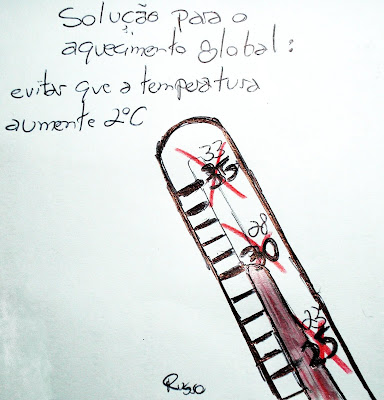 Solução para o
aquecimento global:
evitar que a temperatura
aumente 2°C
33
35
28
30
23
25